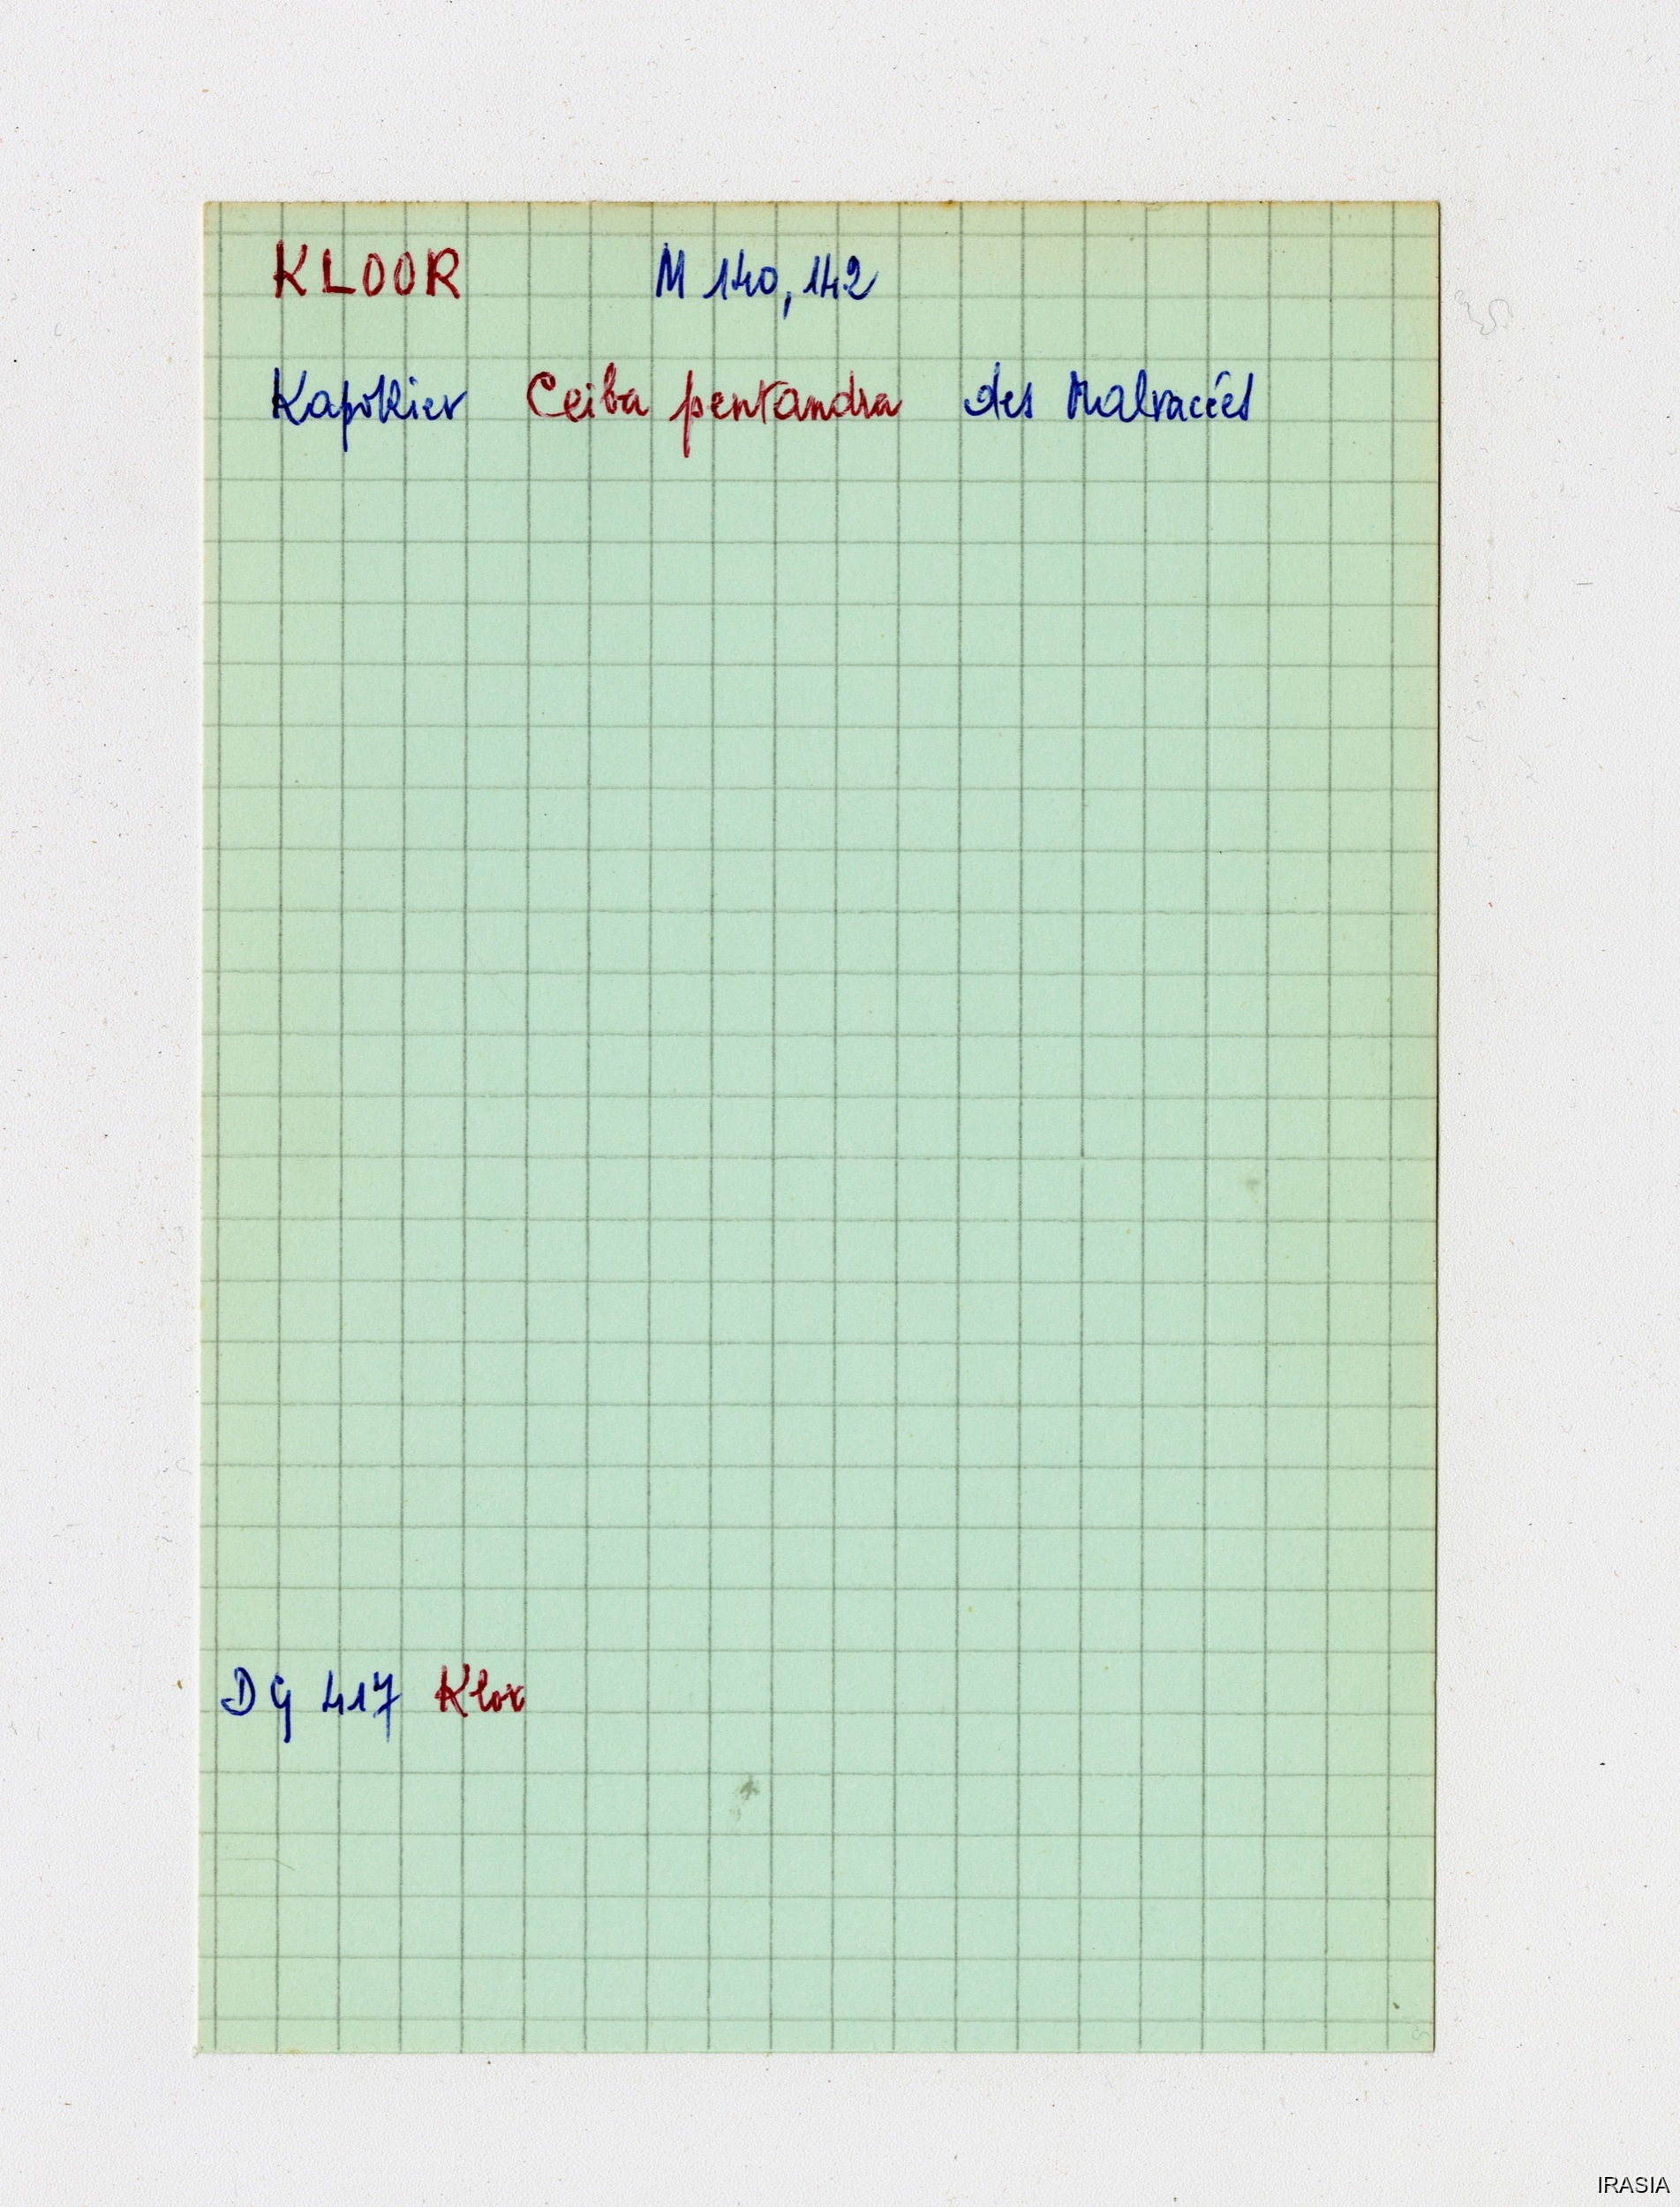 KLOOR M 140, 142
Kapokier Ceiba pentandra des Malvacées
DG 417 Klor
IRASIA